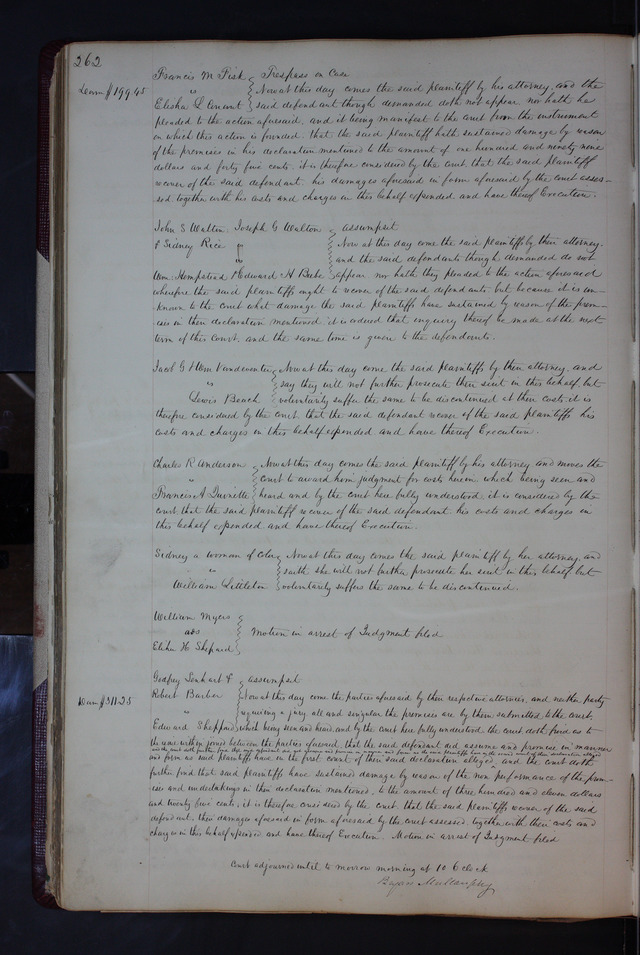 262
Francis M Fisk } Trespass on Case
Dam $199.45 vs } Now at this day comes the said plaintiff by his attorney, and the
Elisha L } said defendant though demanded doth not appear nor hath he
pleaded to the action aforesaid, and it being manifest to the court from the instrument
on which this action is founded that the said plaintiff hath sustained damage by reason
of the premises in his declaration mentioned to the amount of one hundred and ninety nine
dollars and forty five cents, it is therefore considered by the court that the said plaintiff
recover of the said defendant his damages aforesaid in form aforesaid by the court asses-
sed together with his costs and charges in this behalf expended, and have thereof Execution.
John S Walton, Joseph G Walton } assumpsit
& Sidney Rice } Now at this day come the said plaintiffs by their attorney,
vs } and the said defendants though demanded do not
Wm Hempstead & Edward H Beebe } appear nor hath they pleaded to the action aforesaid
wherefore the said plaintiffs ought to recover of the said defendants but because it is un-
known to the court what damage the said plaintiffs have sustained by reason of the prem-
ises in their declaration mentioned, it is ordered that enquiry thereof be made at the next
term of this court, and the same time is given to the defendants.
Jacob G & Wm Vandeventer } Now at this day come the said plaintiffs by their attorney, and
vs } say they will not further prosecute their suit in this behalf but
Lewis Beach } voluntarily suffer the same to be discontinued at their costs it is
therefore considered by the court that the said defendant recover of the said plaintiffs his
costs and charges in this behalf expended and have thereof Execution.
Charles R Anderson } Now at this day comes the said plaintiff by his attorney and moves the
vs } court to award him judgment for costs herein which being seen and
Francis A } heard and by the court here fully understood it is considered by the
court that the said plaintiff recover of the said defendant his costs and charges in
this behalf expended and have thereof Execution.
Sidney a woman of Color } Now at this day comes the said plaintiff by her attorney, and
vs } saith she will not further prosecute her suit in this behalf but
William Littleton } voluntarily suffers the same to be discontinued.
William Myers }
ads } Motion in arrest of Judgment filed
Elihu H Shepard }
Godfrey Lenhart & } assumpsit
Dam $311.25 Robert Barber } Now at this day come the parties aforesaid by their respective attornies, and neither party
vs } requiring a jury all and singular the premises are by them submitted to the court,
Edward Sheppard } which being seen and heard, and by the court here fully understood, the court doth find as to
the issue within joined between the parties aforesaid, that the said defendant did assume and promise in manner
and form as said plaintiffs have in the first count of their said declaration alleged, and the court doth
further find that said plaintiffs have sustained damage by reason of the non performance of the prom-
ises and undertakings in their declaration mentioned, to the amount of three hundred and eleven dollars
and twenty five cents, it is therefore considered by the court that the said plaintiffs recover of the said
defendant their damages aforesaid in form aforesaid by the court assessed, together with their costs and
charges in this behalf expended and have thereof Execution. Motion in arrest of Judgment filed
Court adjourned until to morrow morning at 10 O'clock
Bryan Mullanphy